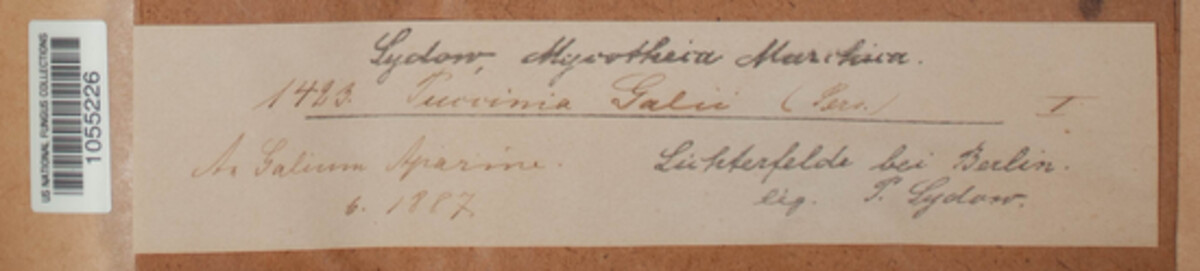 US NATIONAL FUNGUS COLLECTIONS
1055226
Sydow, Mycotheca Marchica.
1423. Puccinia Galii (Pers.) I.
An Galium Aparine.
6. 1887
Lichterfelde bei Berlin.
leg. P. Sydow.